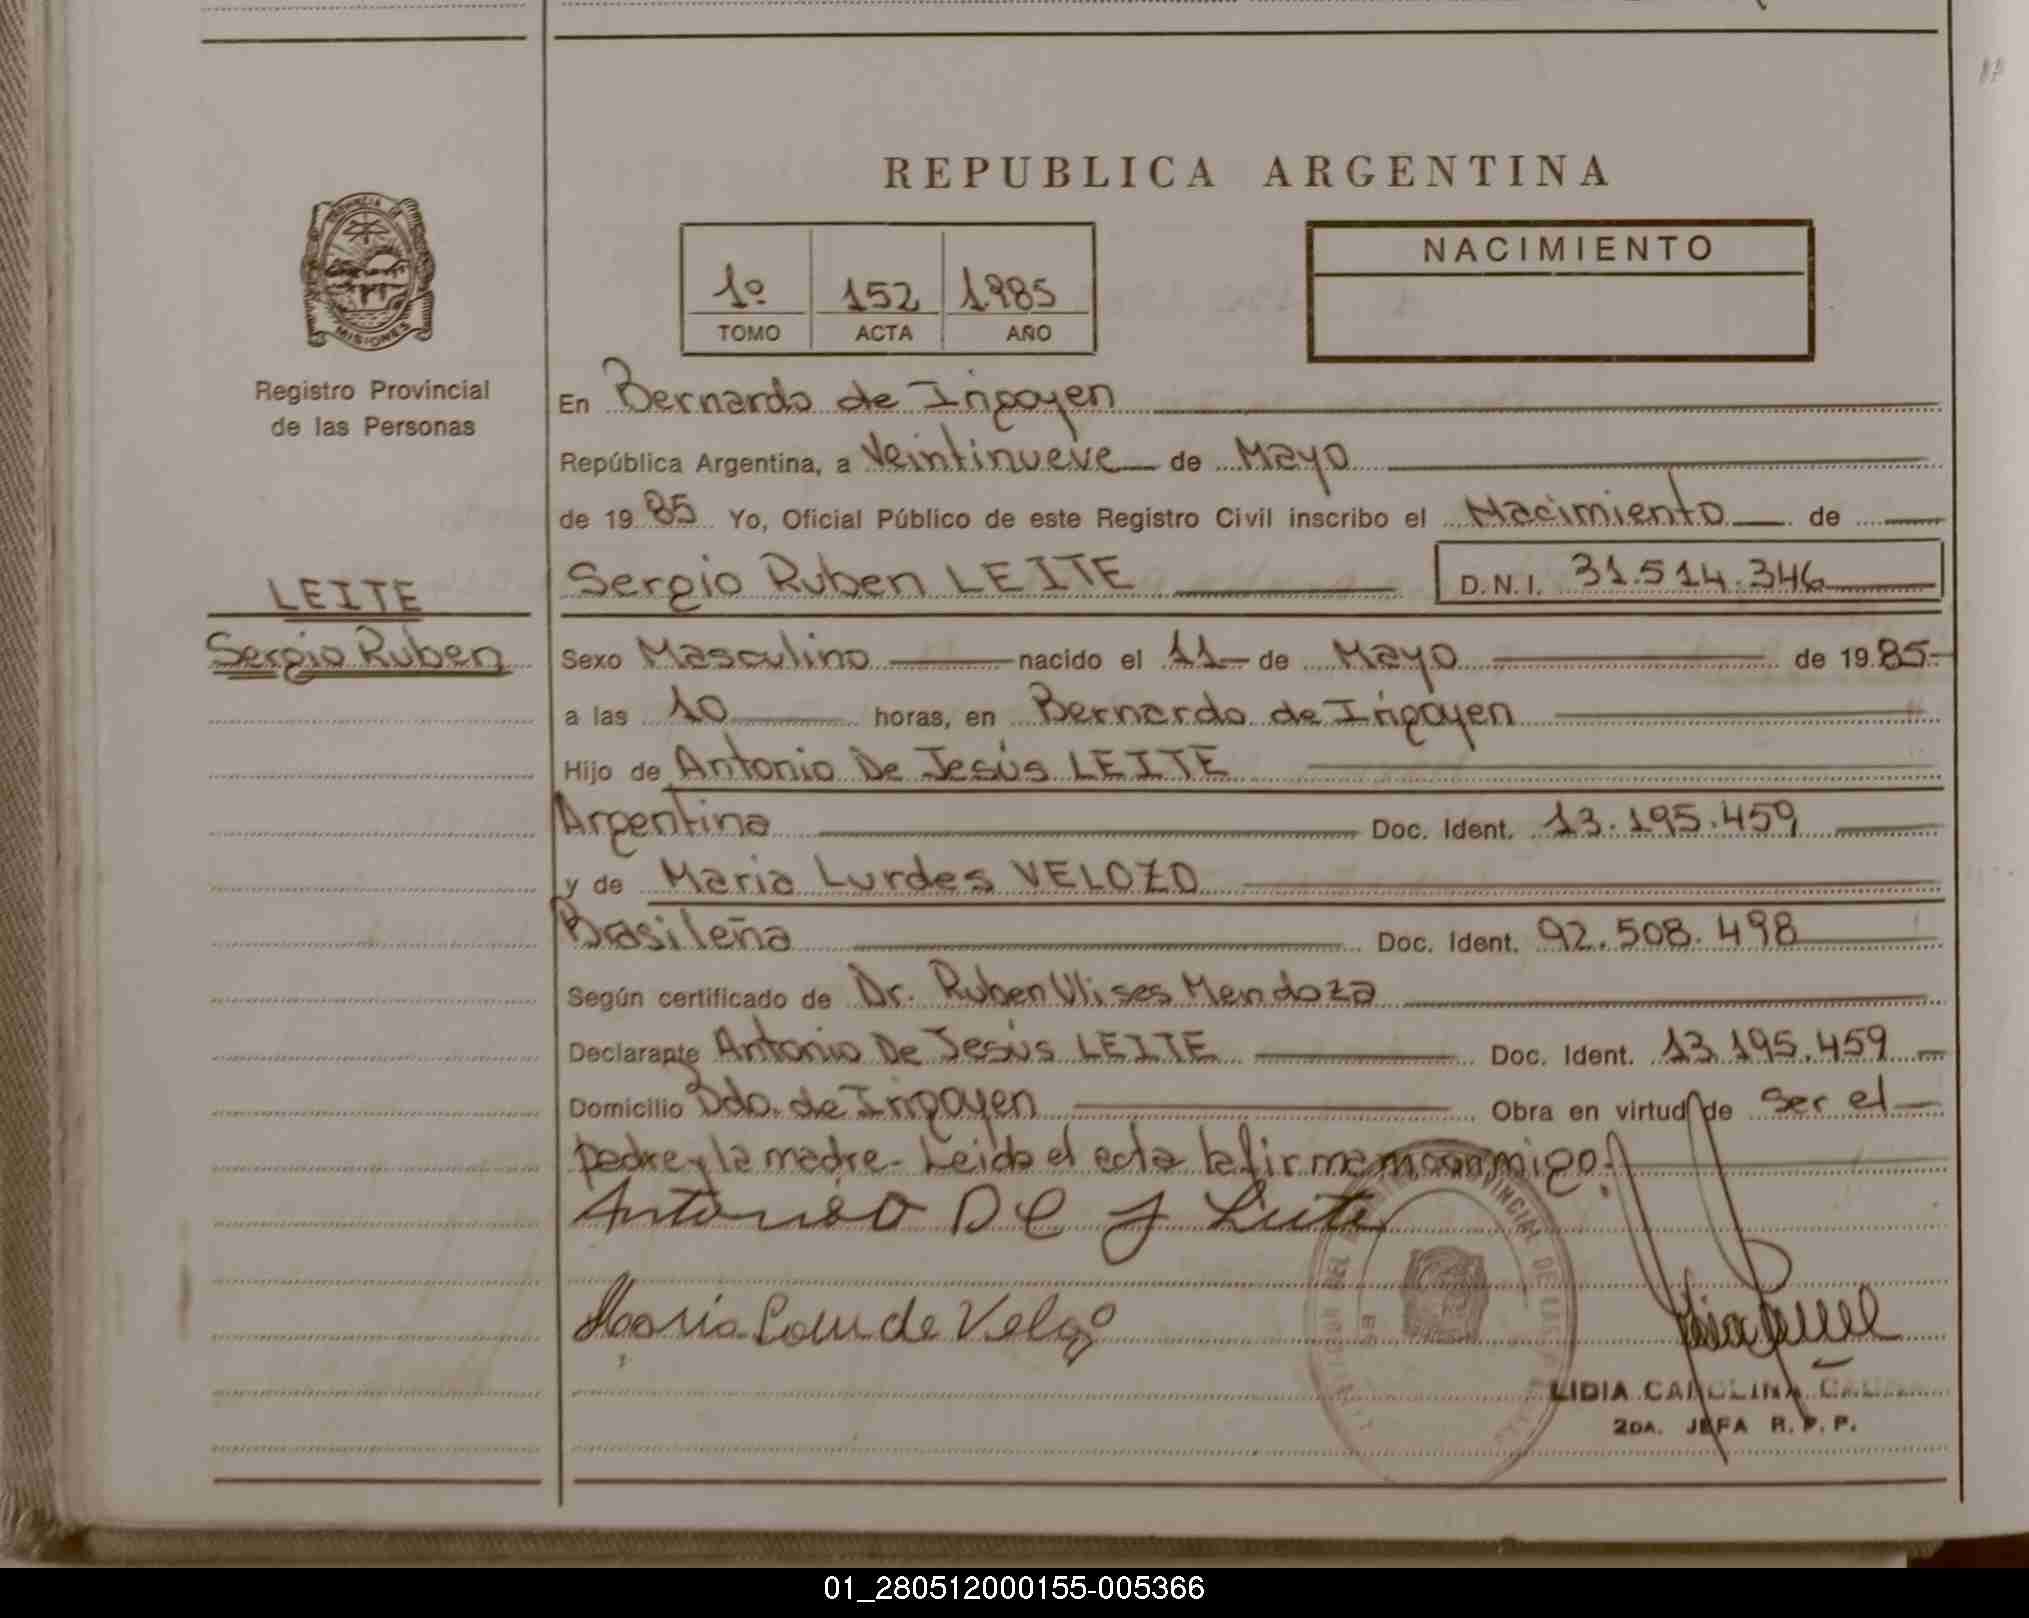 REPUBLICA ARGENTINA
PROVINCIA DE
MISIONES
Registro Provincial
de las Personas
1º 152 1985
TOMO ACTA AÑO
NACIMIENTO
En Bernardo de Irigoyen
República Argentina, a Veintinueve de Mayo
de 1985 Yo, Oficial Público de este Registro Civil inscribo el Nacimiento de
Sergio Ruben LEITE D.N.I. 31.514.346
LEITE
Sergio Ruben
Sexo Masculino nacido el 11 de Mayo de 1985-
a las 10 horas, en Bernardo de Irigoyen
Hijo de Antonio De Jesús LEITE
Argentina Doc. Ident. 13.195.459
y de Maria Lurdes VELOZO
Brasileña Doc. Ident. 92.508.498
Según certificado de Dr. Ruben Ulises Mendoza
Declarante Antonio De Jesús LEITE Doc. Ident. 13.195.459
Domicilio Bdo. de Irigoyen Obra en virtud de ser el
padre y la madre. Leida el acta la firman conmigo.
Antonio De J Leite
Maria Lourde Velozo
PROVINCIAL DE LAS
LIDIA CAROLINA
2DA. JEFA R.P.P.
01_280512000155-005366